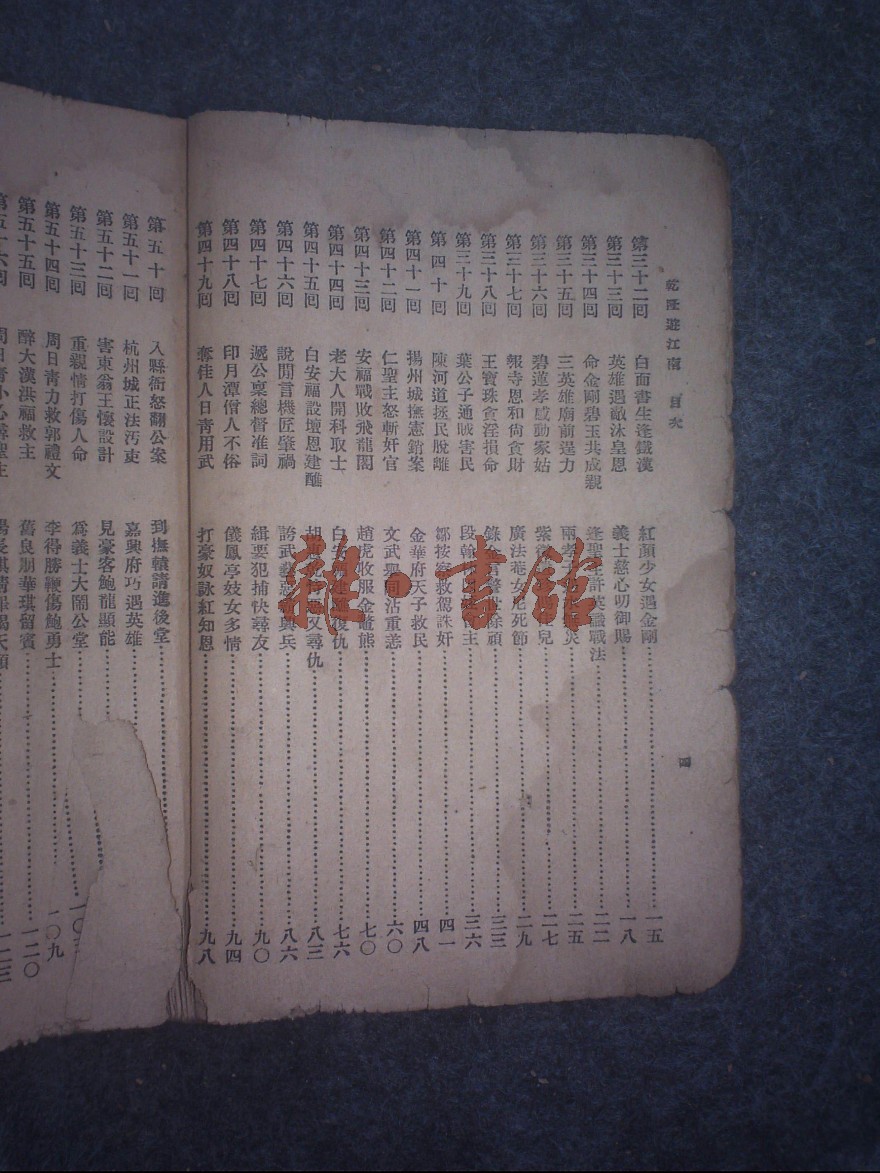 乾隆遊江南　目次
四
第三十二回　白面書生逢鐵漢　紅顏少女遇金剛……一五
第三十三回　英雄遇敵沐皇恩　義士慈心叨御賜……一八
第三十四回　命金剛碧玉共成親　逢聖　許英　戰法……二二
第三十五回　三英雄廟前逞力　兩孝　災……二五
第三十六回　碧蓮孝感動家姑　紫　兒……二七
第三十七回　報寺恩和尚貪財　廣法菴女尼死節……二九
第三十八回　王寶珠貪淫損命　錄　警世除頑……三三
第三十九回　葉公子通賊害民　段翰　主……三六
第四十回　陳河道拯民脫離　鄒按察救駕誅奸……四一
第四十一回　揚州城撫憲銷案　金華府天子救民……四八
第四十二回　仁聖主怒斬奸官　文武聖同沾重恙……六〇
第四十三回　安福戰敗飛龍閣　趙虎收服金鰲熊……七〇
第四十四回　老大人開科取士　白安福建　復仇……七六
第四十五回　白安福設壇恩建醮　胡惠　又尋仇……八三
第四十六回　說閒言機匠肇禍　誇武藝惡　興兵……八六
第四十七回　遞公稟總督准詞　緝要犯捕快尋友……九〇
第四十八回　印月潭僧人不俗　儀鳳亭妓女多情……九四
第四十九回　奪佳人日青用武　打豪奴詠紅知恩……九八
第五十回　入縣衙怒翻公案　到撫轅請進後堂
第五十一回　杭州城正法污吏　嘉興府巧遇英雄
第五十二回　害東翁王懷設計　見豪客鮑龍顯能
第五十三回　重親情打傷人命　爲義士大鬧公堂……一〇
第五十四回　周日青力救郭禮文　李得勝鞭傷鮑勇士……一〇九
第五十五回　醉大漢洪福救主　舊良朋華琪留賓……一二〇
第五十六回　周日青小心尋聖主　楊長祺　天顏……一二三
雜·書館